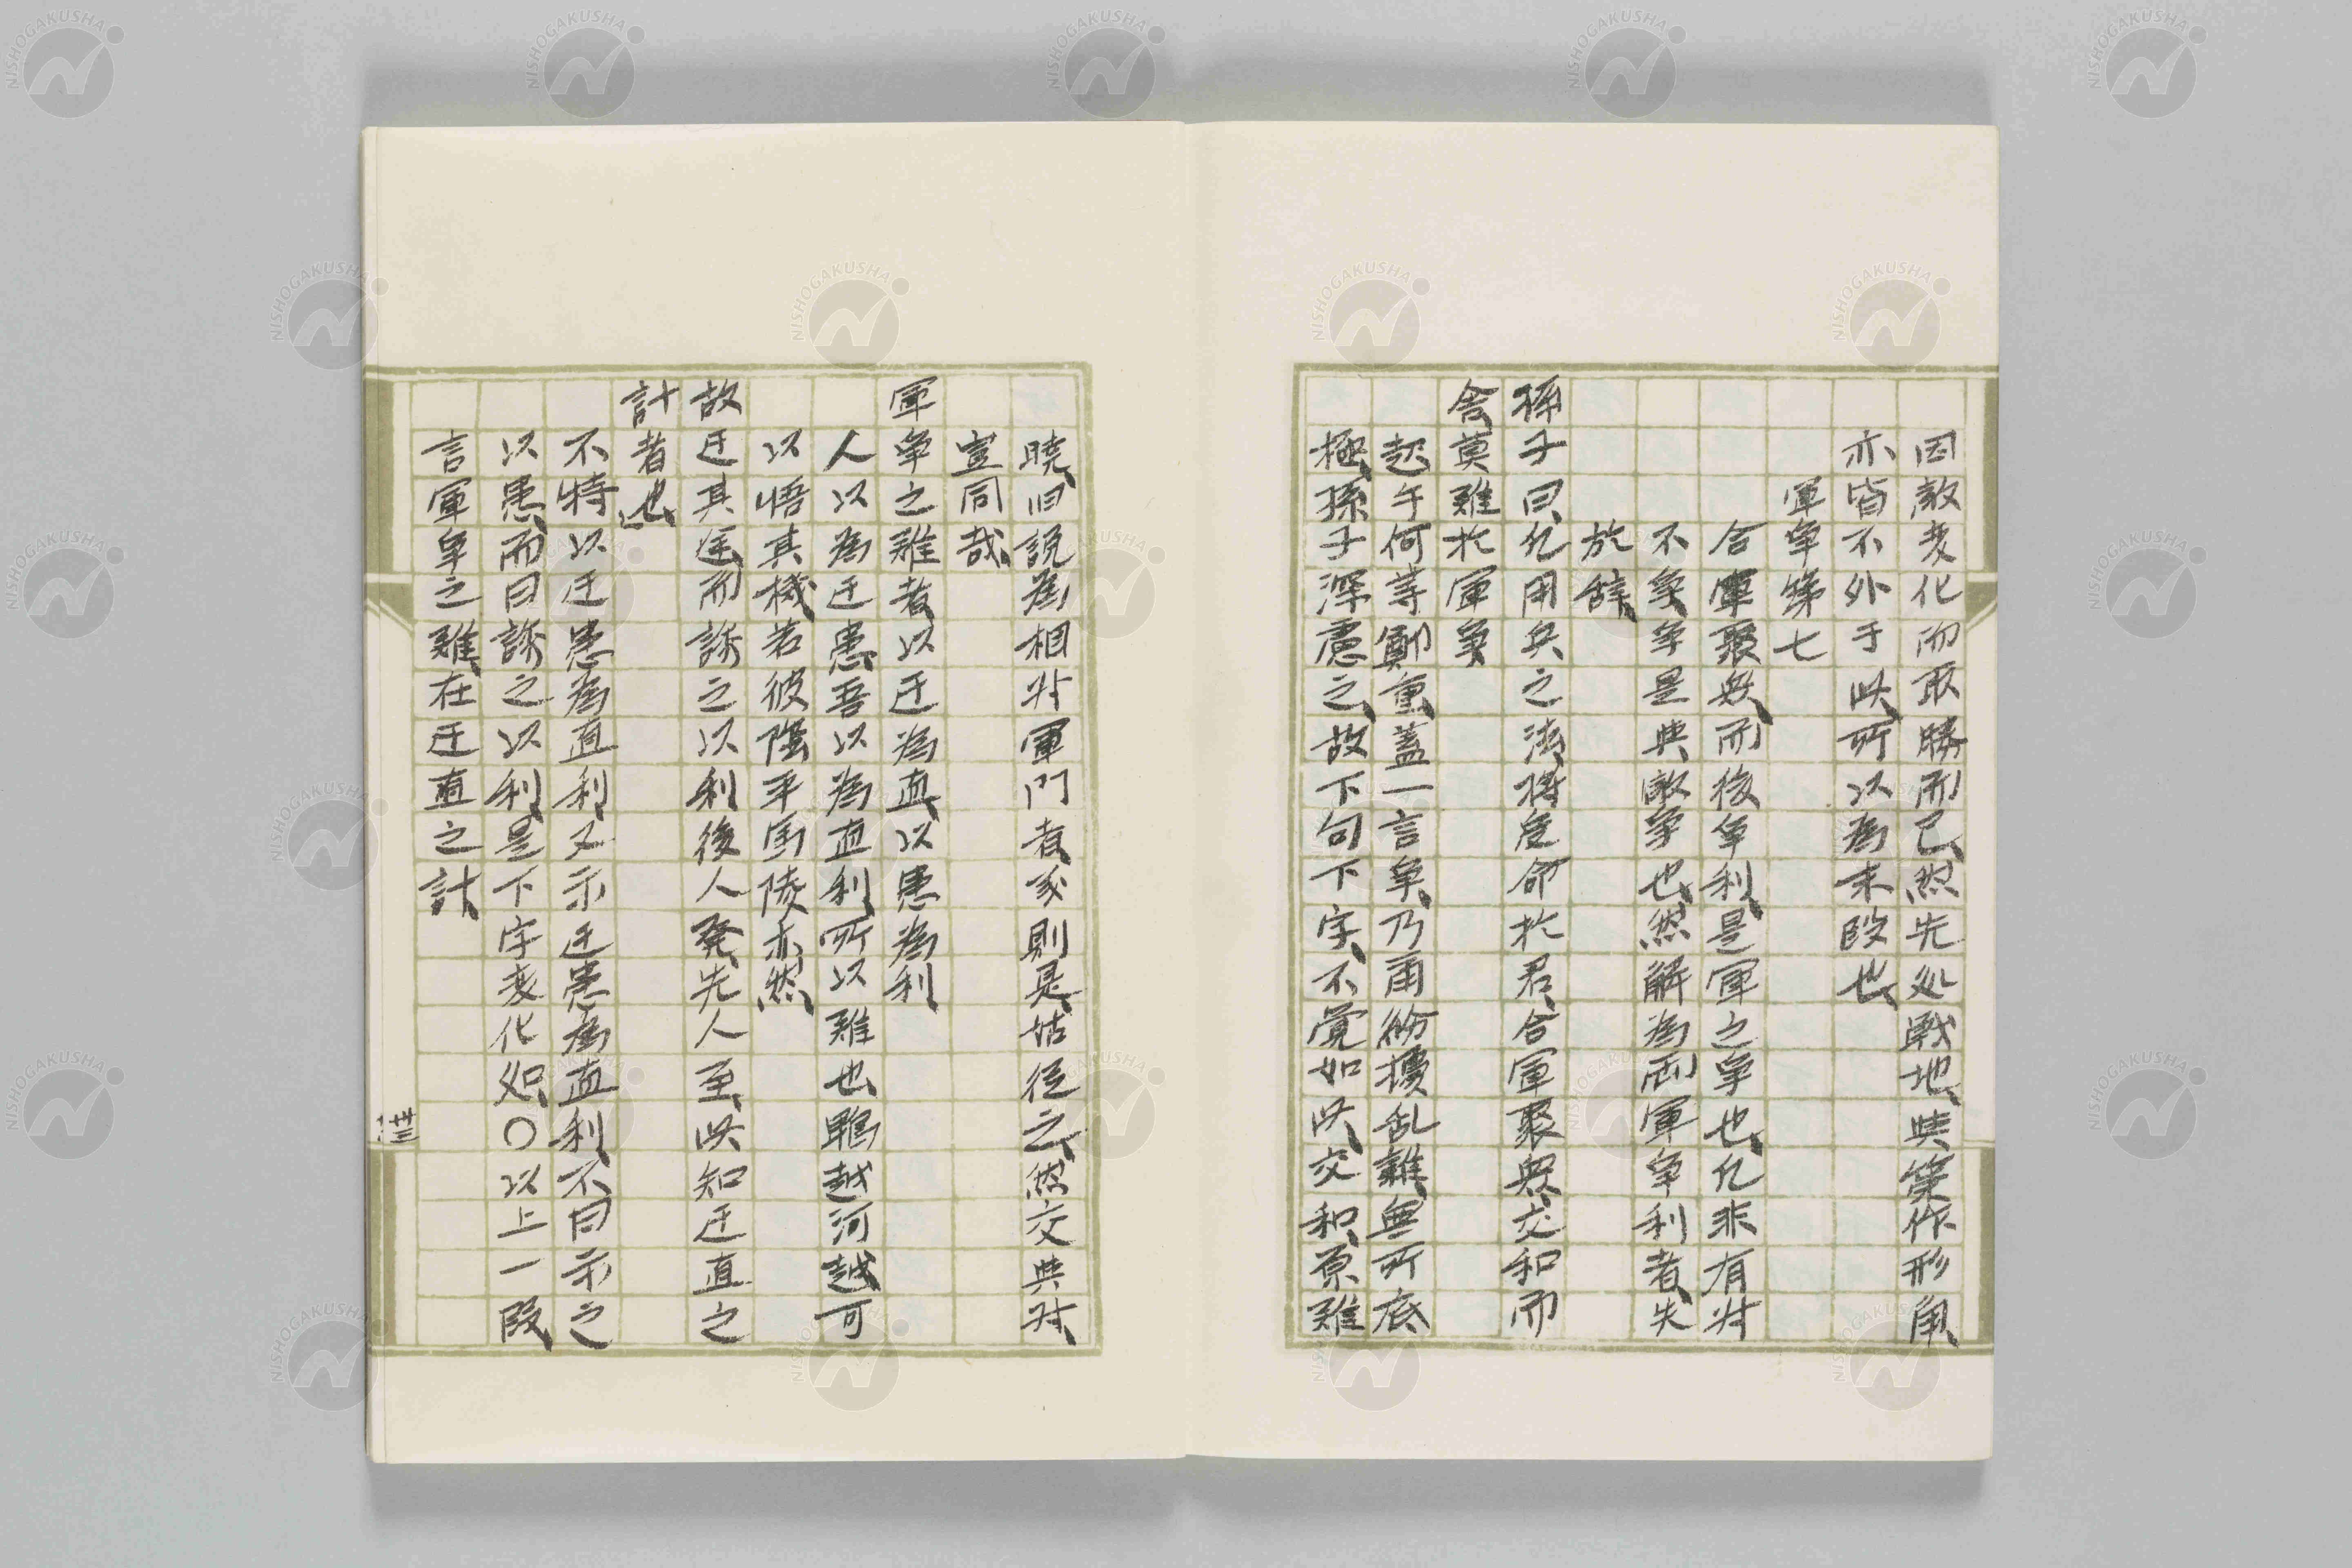 因敵変化而取勝而已、然先処戦地、与策作形角、
亦皆不外于此、所以為末段也、
軍争第七
合軍聚衆、而後争利、是軍之争也、凡非有対
不争、争是与敵争也、然解為両軍争利者、失
於辞、
孫子曰、凡用兵之法、将受命於君、合軍聚衆、交和而
舎、莫難於軍争
起乎何等鄭重、蓋一言争、乃甬紛擾乱雑、無所底
極、孫子深慮之、故下句下字、不覚如此、交和、原難
暁、旧説為相対軍門者、姑従之、然交与対、
豈同哉、
軍争之難者、以迂為直、以患為利
人以為迂患、吾以為直利、所以難也、鄴越河越可
以悟其機、若彼陰平馬陵亦然、
故迂其途、而誘之以利、後人発、先人至、此知迂直之
計者也、
不特以迂患為直利、又示迂患為直利、不曰示之
以患、而曰誘之以利、是下字変化処、○以上一段、
言軍争之難、在迂直之計、
NISHOGAKUSHA